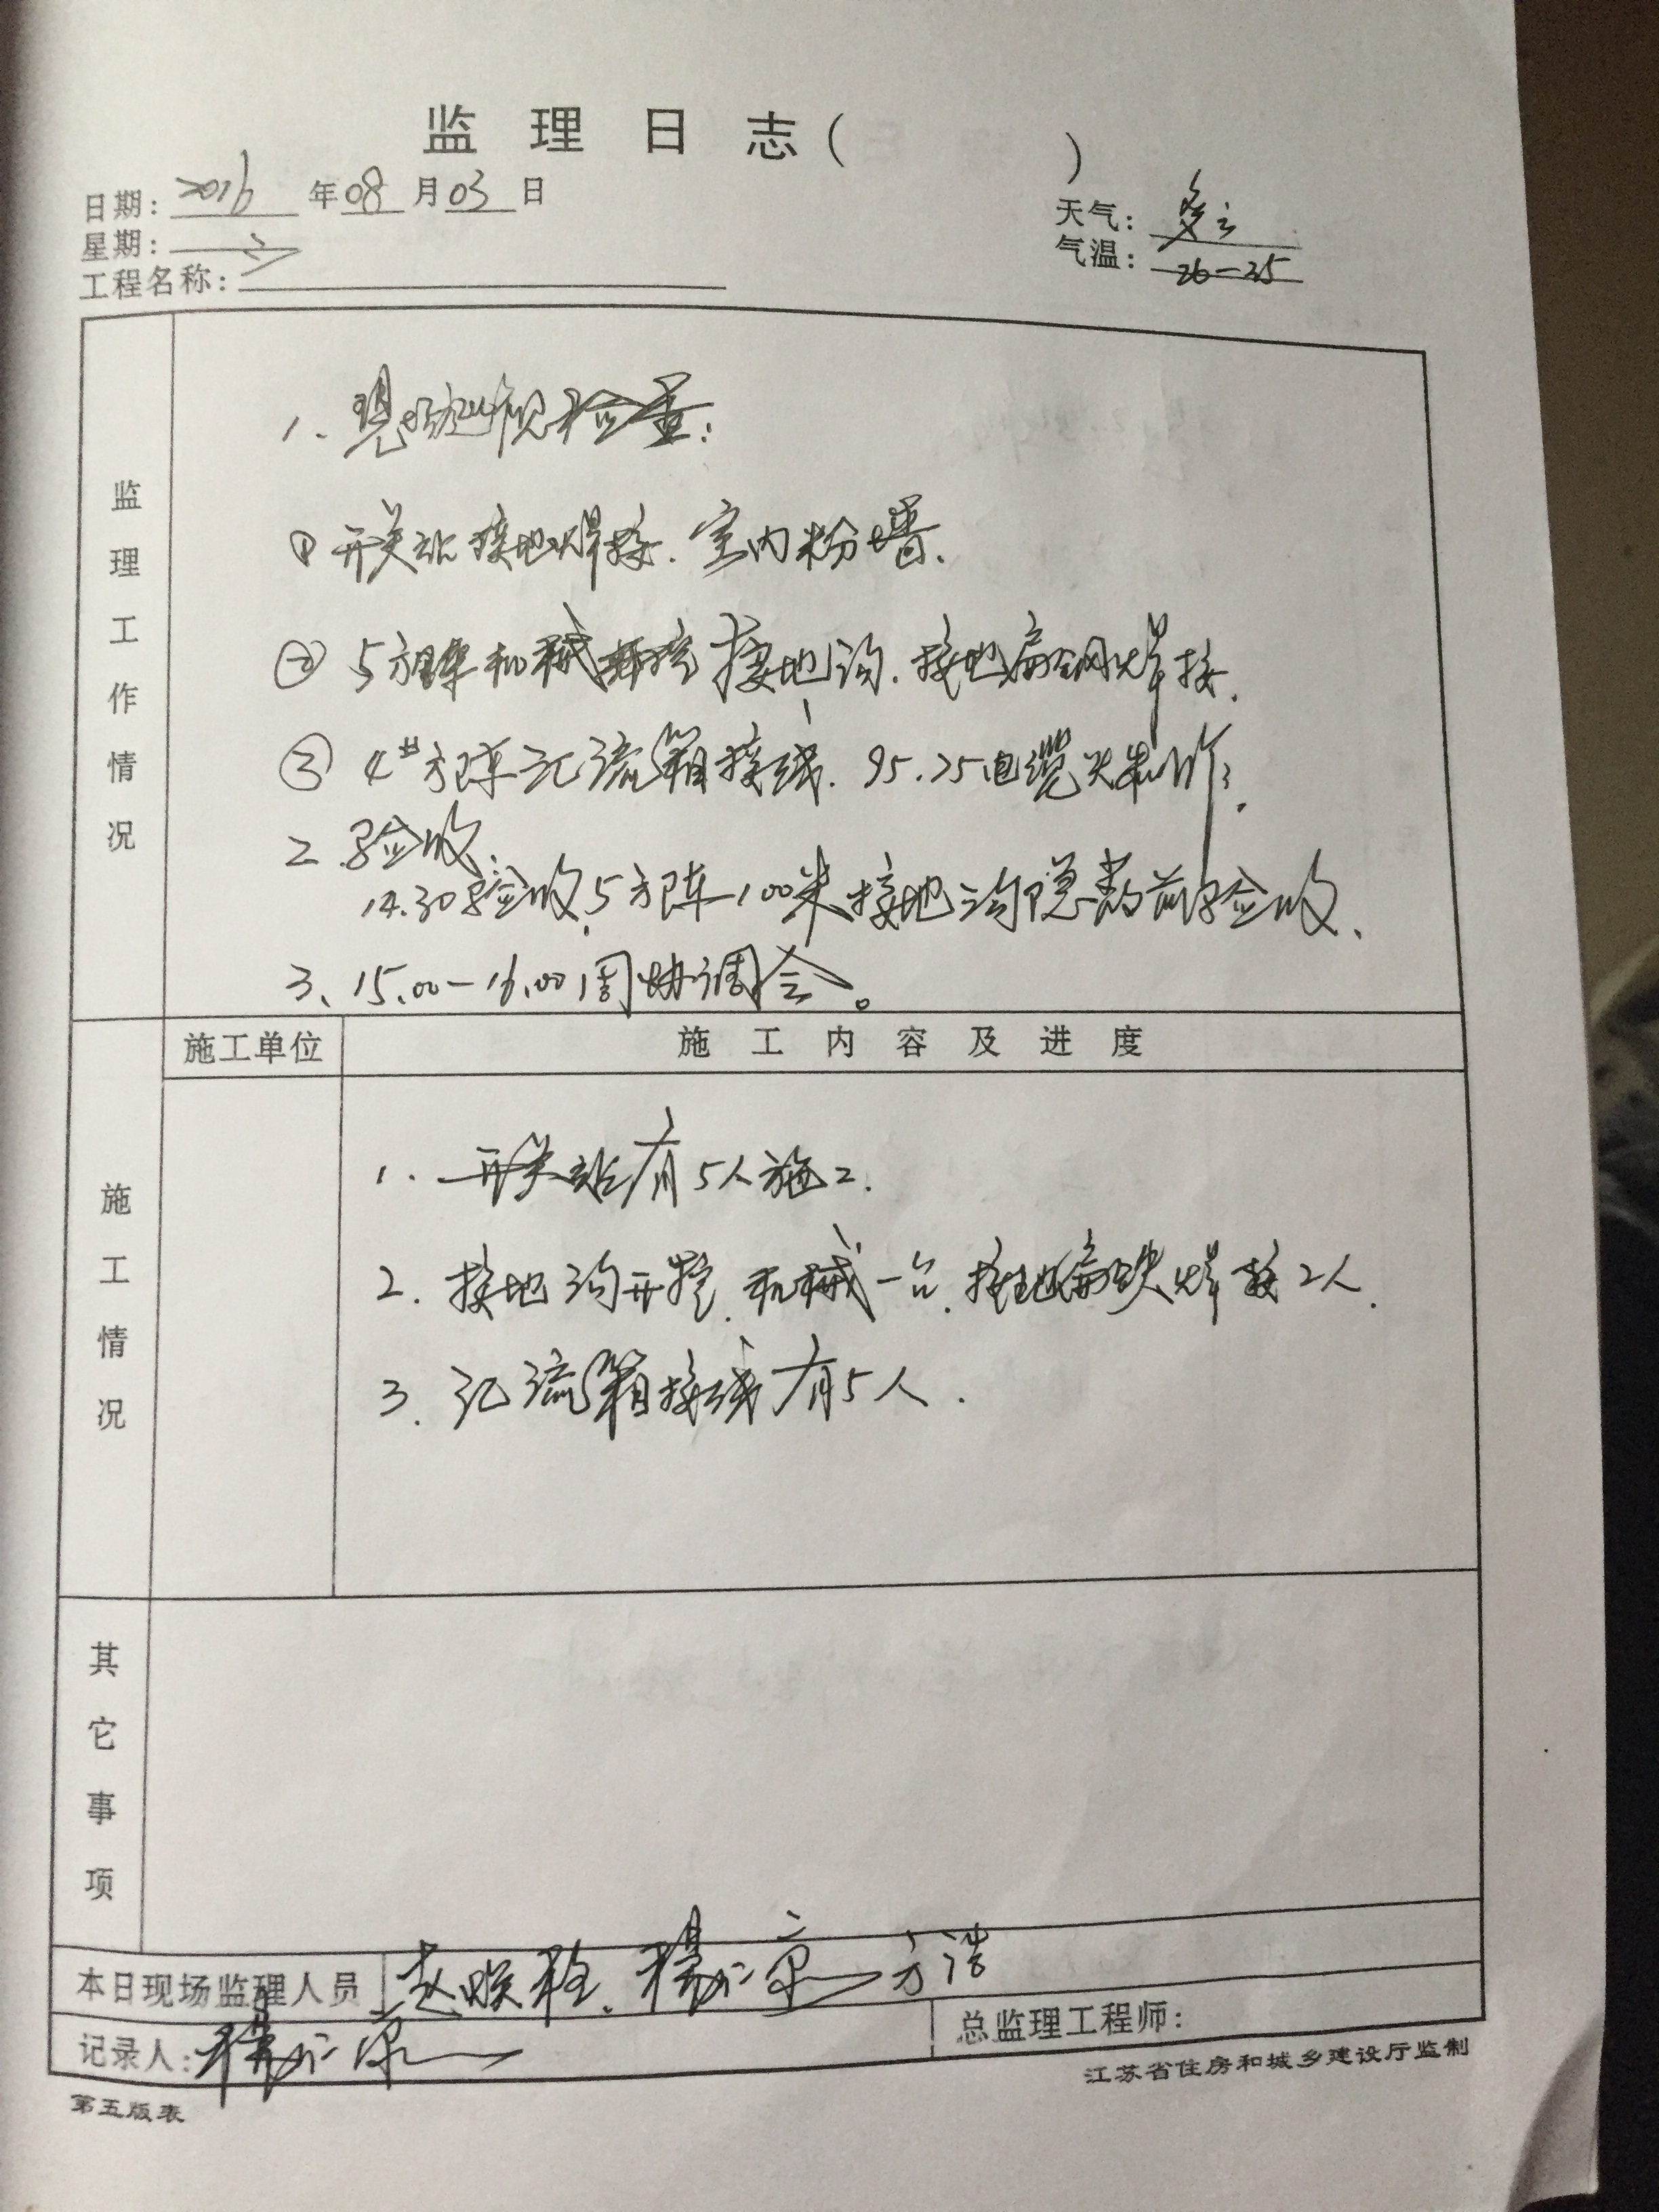 监理日志（ ）
日期：2016年08月03日
天气：多云
星期：三
气温：26-35
工程名称：
监理工作情况
1.现场巡视检查：
①开关站接地焊接.室内粉墙.
②5方阵机械开挖接地沟.接地扁钢焊接.
③4#方阵汇流箱接线.95.25电缆头制作.
2.验收.
14.30验收5方阵100米接地沟隐蔽前验收、
3、15.00-16.00周协调会。
施工单位 施工内容及进度
施工情况
1.开关站有5人施工.
2.接地沟开挖.机械一台.接地扁铁焊接2人.
3.汇流箱接线有5人.
其它事项
本日现场监理人员 赵 杨 方浩
记录人：杨
总监理工程师：
江苏省住房和城乡建设厅监制
第五版表